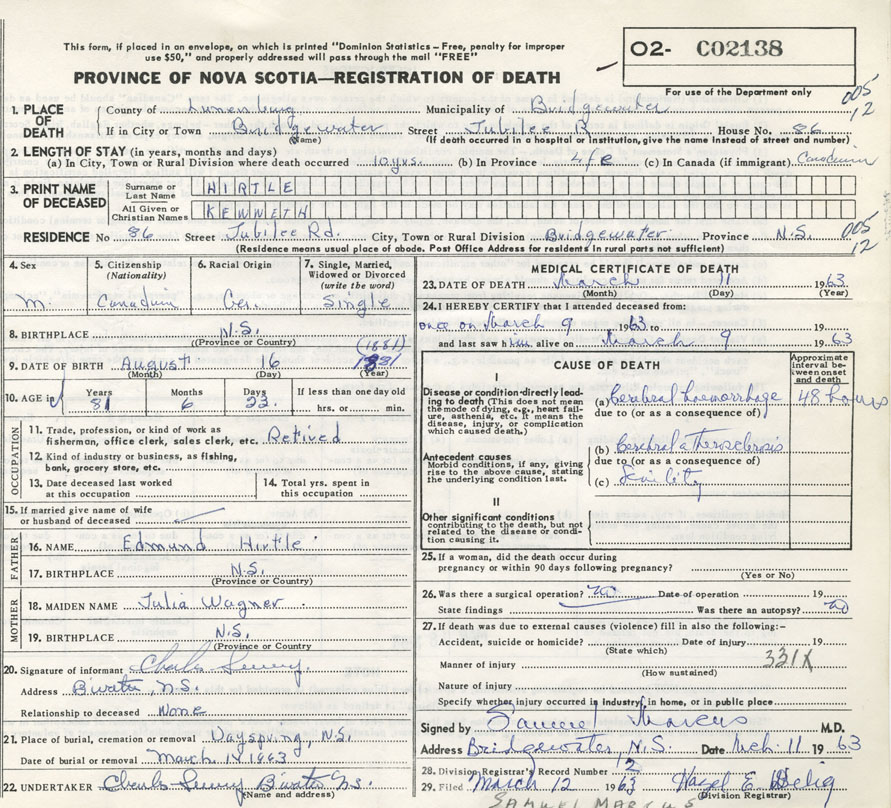 This form, if placed in an envelope, on which is printed "Dominion Statistics – Free, penalty for improper
use $50," and properly addressed will pass through the mail "FREE"
O2- C02138
PROVINCE OF NOVA SCOTIA—REGISTRATION OF DEATH
For use of the Department only
005
12
1. PLACE OF DEATH
County of Lunenburg Municipality of Bridgewater
If in City or Town Bridgewater Street Jubilee R House No. 86
(Name) (If death occurred in a hospital or institution, give the name instead of street and number)
2. LENGTH OF STAY (in years, months and days)
(a) In City, Town or Rural Division where death occurred 10 yrs. (b) In Province Life (c) In Canada (if immigrant) Canadian
3. PRINT NAME OF DECEASED
Surname or Last Name HIRTLE
All Given or Christian Names KENNETH
RESIDENCE No 86 Street Jubilee Rd. City, Town or Rural Division Bridgewater Province N.S.
005
12
(Residence means usual place of abode. Post Office Address for residents in rural parts not sufficient)
4. Sex
M.
5. Citizenship
(Nationality)
Canadian
6. Racial Origin
Ger.
7. Single, Married,
Widowed or Divorced
(write the word)
Single
8. BIRTHPLACE N.S.
(Province or Country)
(1881)
9. DATE OF BIRTH August 16 1881
(Month) (Day) (Year)
10. AGE in
Years Months Days If less than one day old
81 6 23 hrs. or min.
OCCUPATION
11. Trade, profession, or kind of work as
fisherman, office clerk, sales clerk, etc. Retired
12. Kind of industry or business, as fishing,
bank, grocery store, etc.
13. Date deceased last worked
at this occupation
14. Total yrs. spent in
this occupation
15. If married give name of wife
or husband of deceased
FATHER
16. NAME Edmund Hirtle
17. BIRTHPLACE N.S.
(Province or Country)
MOTHER
18. MAIDEN NAME Julia Wagner
19. BIRTHPLACE N.S.
(Province or Country)
20. Signature of informant Charles
Address B'water, N.S.
Relationship to deceased None
21. Place of burial, cremation or removal Dayspring, N.S.
Date of burial or removal March 1963
22. UNDERTAKER Charles B'water N.S.
(Name and address)
MEDICAL CERTIFICATE OF DEATH
23. DATE OF DEATH March 11 1963
(Month) (Day) (Year)
24. I HEREBY CERTIFY that I attended deceased from:
once on March 9 1963 to 19
and last saw him alive on March 9 1963
CAUSE OF DEATH
Approximate
interval be-
tween onset
and death
I
Disease or condition directly lead-
ing to death (This does not mean
the mode of dying, e.g., heart fail-
ure, asthenia, etc. It means the
disease, injury, or complication
which caused death.)
(a) Cerebral haemorrhage 48 hours
due to (or as a consequence of)
Antecedent causes
Morbid conditions, if any, giving
rise to the above cause, stating
the underlying condition last.
(b) Cerebral atherosclerosis
due to (or as a consequence of)
(c)
II
Other significant conditions
contributing to the death, but not
related to the disease or condition
causing it.
25. If a woman, did the death occur during
pregnancy or within 90 days following pregnancy?
(Yes or No)
26. Was there a surgical operation? no Date of operation 19
State findings Was there an autopsy? no
27. If death was due to external causes (violence) fill in also the following:–
Accident, suicide or homicide? Date of injury 19
(State which)
331X
Manner of injury
(How sustained)
Nature of injury
Specify whether injury occurred in industry, in home, or in public place
Signed by Samuel Marcus M.D.
Address Bridgewater, N.S. Date Mch. 11 1963
28. Division Registrar's Record Number 12
29. Filed March 12 1963 Hazel E
(Division Registrar)
SAMUEL MARCUS